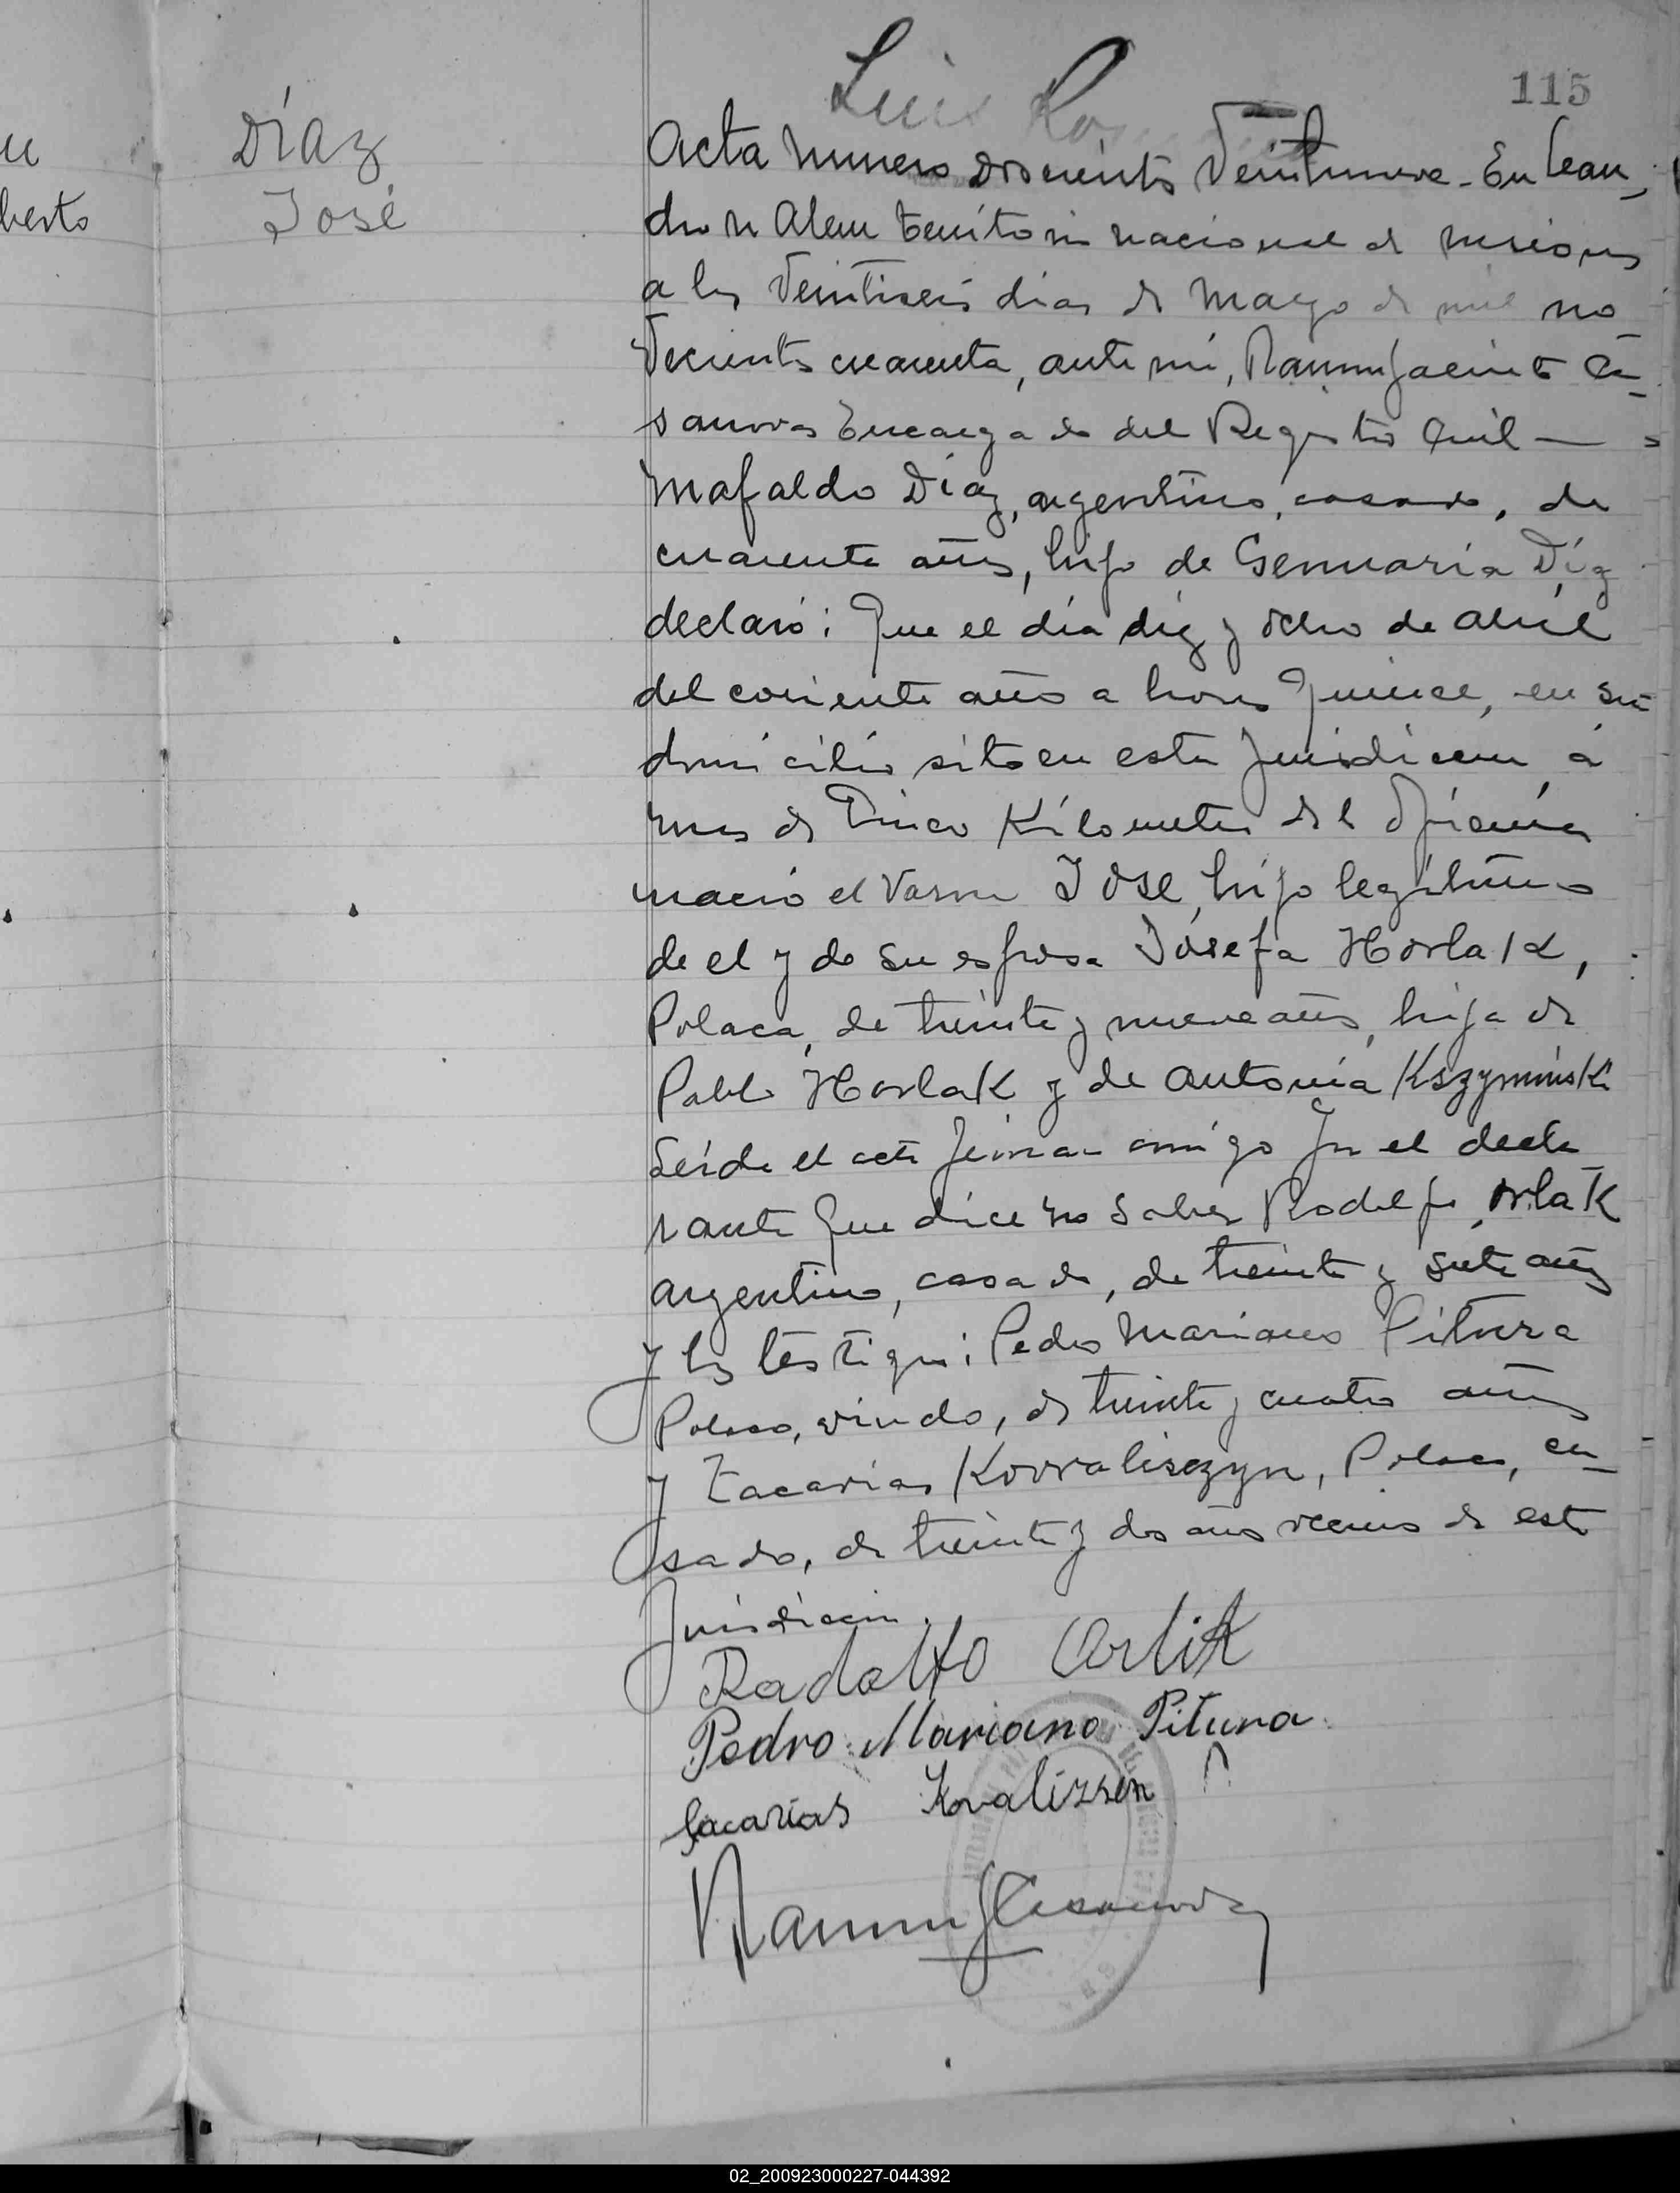 115
Luis
Díaz
José
u
berto
Acta numero doscientos Veintinueve - En Lean_
dro N Alem territorio nacional de Misiones
a los Veintiseis dias de Mayo de mil no_
vecientos cuarenta, ante mi, Ramon Jacinto Ca_
sanovas Encargado del Registro Civil —
Mafaldo Díaz, argentino, casado, de
cuarenta años, hijo de Gennaria Díaz
declaró: Que el día diez y ocho de abril
del coriente año a horas Quince, en su
domicilio sito en esta Jurisdiccion a
mas de Cinco Kilometros de l Oficina
nació el Varon JOSE, hijo legitimo
de el y de su esposa Josefa Horlak,
Polaca, de treinta y nueve años, hija de
Pablo Horlak y de Antonia Kszyminski
Leida el acta firma a por el decla
rante que dice no saber Rodolfo Orlak
argentino, casado, de treinta y siete años
y los testigos: Pedro Mariano Pitura
Polaco, viudo, de treinta y cuatro años
y Zacarias Kowaliszzyn, Polaco, ca_
sado, de treinta y dos años vecinos de esta
Jurisdiccion.
Radolfo Orlik
Pedro Mariano Pitura
Sacarias Kovalizsen
Ramon J Casanovas
02_200923000227-044392